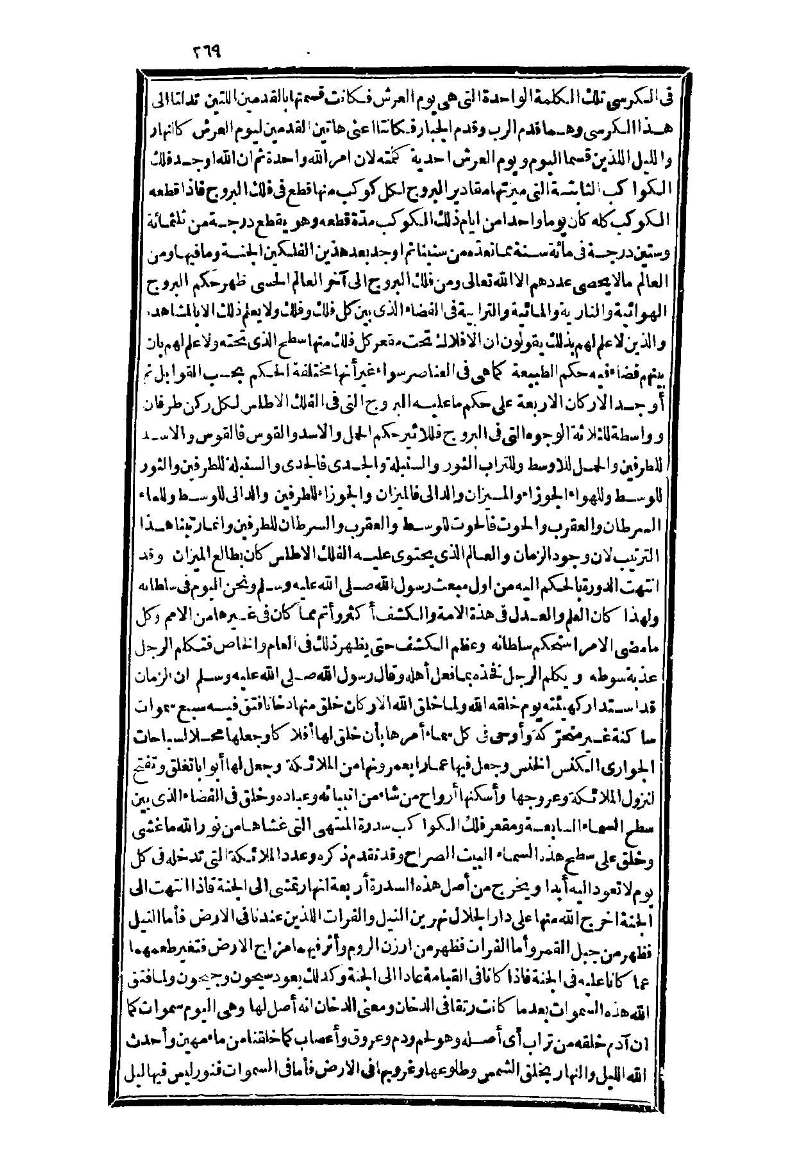 ٢٦٩
فى الكرسى تلك الكلمة الواحدة التى هى يوم العرش فكانت قسمتها بالقدمين اللتين تدلتا الى
هذا الكرسى وهما قدم الرب وقدم الجبار فكانتا اعنى هاتين القدمين ليوم العرش كالنهار
والليل اللذين قسما اليوم ويوم العرش احدية كلمته لان امر الله واحدة ثم ان الله اوجد فلك
الكواكب الثابتة التى ميزتها مقادير البروج لكل كوكب منها قطع فى فلك البروج فاذا قطعه
الكوكب كله كان يوما واحدا من ايام ذلك الكوكب مدة قطعه وهو يقطع درجة من ثلثمائة
وستين درجة فى مائة سنة مما تعده من سنينا ثم اوجد بعد هذين الفلكين الجنة وما فيها ومن
العالم مالا يحصى عددهم الا الله تعالى ومن فلك البروج الى آخر العالم الحسى ظهر حكم البروج
الهوائية والنارية والمائية والترابية فى الفضاء الذى بين كل فلك وفلك ولا يعلم ذلك الا بالمشاهد،
والذين لا علم لهم بذلك يقولون ان الافلاك تحت مقعر كل فلك منها سطح الذى تحته ولا علم لهم بان
بينهم فضاء فيه حكم الطبيعة كما هى فى العناصر سواء غير أنها مختلفة الحكم بحسب القوابل ثم
أوجد الاركان الاربعة على حكم ما عليه البروج التى فى الفلك الاطلس لكل ركن طرفان
وواسطة للثلاثة الوجوه التى فى البروج فللاثير حكم الحمل والاسد والقوس فالقوس والاسد
للطرفين والحمل للاوسط وللتراب الثور والسنبلة والجدى فالجدى والسنبلة للطرفين والثور
للوسط وللهواء الجوزاء والميزان والدالى فالميزان والجوزاء للطرفين والدالى للوسط وللماء
السرطان والعقرب والحوت فالحوت للوسط والعقرب والسرطان للطرفين وانما رتبنا هذا
الترتيب لان وجود الزمان والعالم الذى يحتوى عليه الفلك الاطلس كان بطالع الميزان وقد
انتهت الدورة بالحكم اليه من اول مبعث رسول الله صلى الله عليه وسلم ونحن اليوم فى سلطانه
ولهذا كان العلم والعدل فى هذه الامة والكشف أكثر وأتم مما كان فى غيرها من الامم وكل
ما مضى الامر استحكم سلطانه وعظم الكشف حتى يظهر ذلك فى العام والخاص فتكلم الرجل
عذبة سوطه ويكلم الرجل فخذه بما فعل أهله وقال رسول الله صلى الله عليه وسلم ان الزمان
قد استدار كهيئته يوم خلقه الله ولما خلق الله الاركان خلق منها دخانا فتق فيه سبع سموات
ساكنة غير متحركة وأوحى فى كل سماء أمرها بأن خلق لها أفلاكا وجعلها محلا لسباحات
الجوارى الكنس الخنس وجعل فيها عمارا يعمرونها من الملائكة وجعل لها أبوابا تغلق وتفتح
لنزول الملائكة وعروجها وأسكنها أرواح من شاء من انبيائه وعباده وخلق فى الفضاء الذى بين
سطح السماء السابعة ومقعر فلك الكواكب سدرة المنتهى التى غشاها من نور الله ما غشى
وخلق على سطح هذه السماء البيت الصراح وقد تقدم ذكره وعدد الملائكة التى تدخله فى كل
يوم لا تعود اليه أبدا ويخرج من أصل هذه السدرة أربعة انهار تمشى الى الجنة فاذا انتهت الى
الجنة اخرج الله منها على دار الجلال نهرين النيل والفرات اللذين عندنا فى الارض فأما النيل
فظهر من جبل القمر وأما الفرات فظهر من ارزن الروم وأثر فيهما مزاج الارض فتغير طعمهما
عما كانا عليه فى الجنة فاذا كانا فى القيامة عادا الى الجنة وكذلك يعود سيحون وجيحون ولما فتق
الله هذه السموات بعدما كانت رتقا فى الدخان ومعنى الدخان انه أصل لها وهى اليوم سموات كما
ان آدم خلقه من تراب أى أصله وهو لحم ودم وعروق وأعصاب كما خلقنا من ماء مهين وأحدث
الله الليل والنهار بخلق الشمس وطلوعها وغروبها فى الارض فأما فى السموات فنور ليس فيها ليل